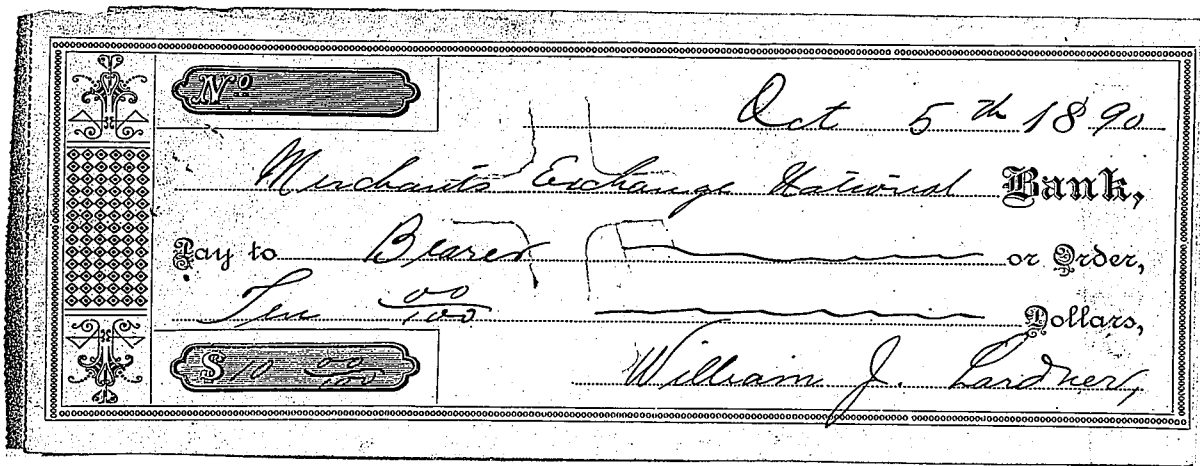 No.
Oct 5th 1890
Merchants Exchange National Bank,
Pay to Bearer or Order,
Ten 00/100 Dollars,
$ 10 00/100
William J. Lardner,